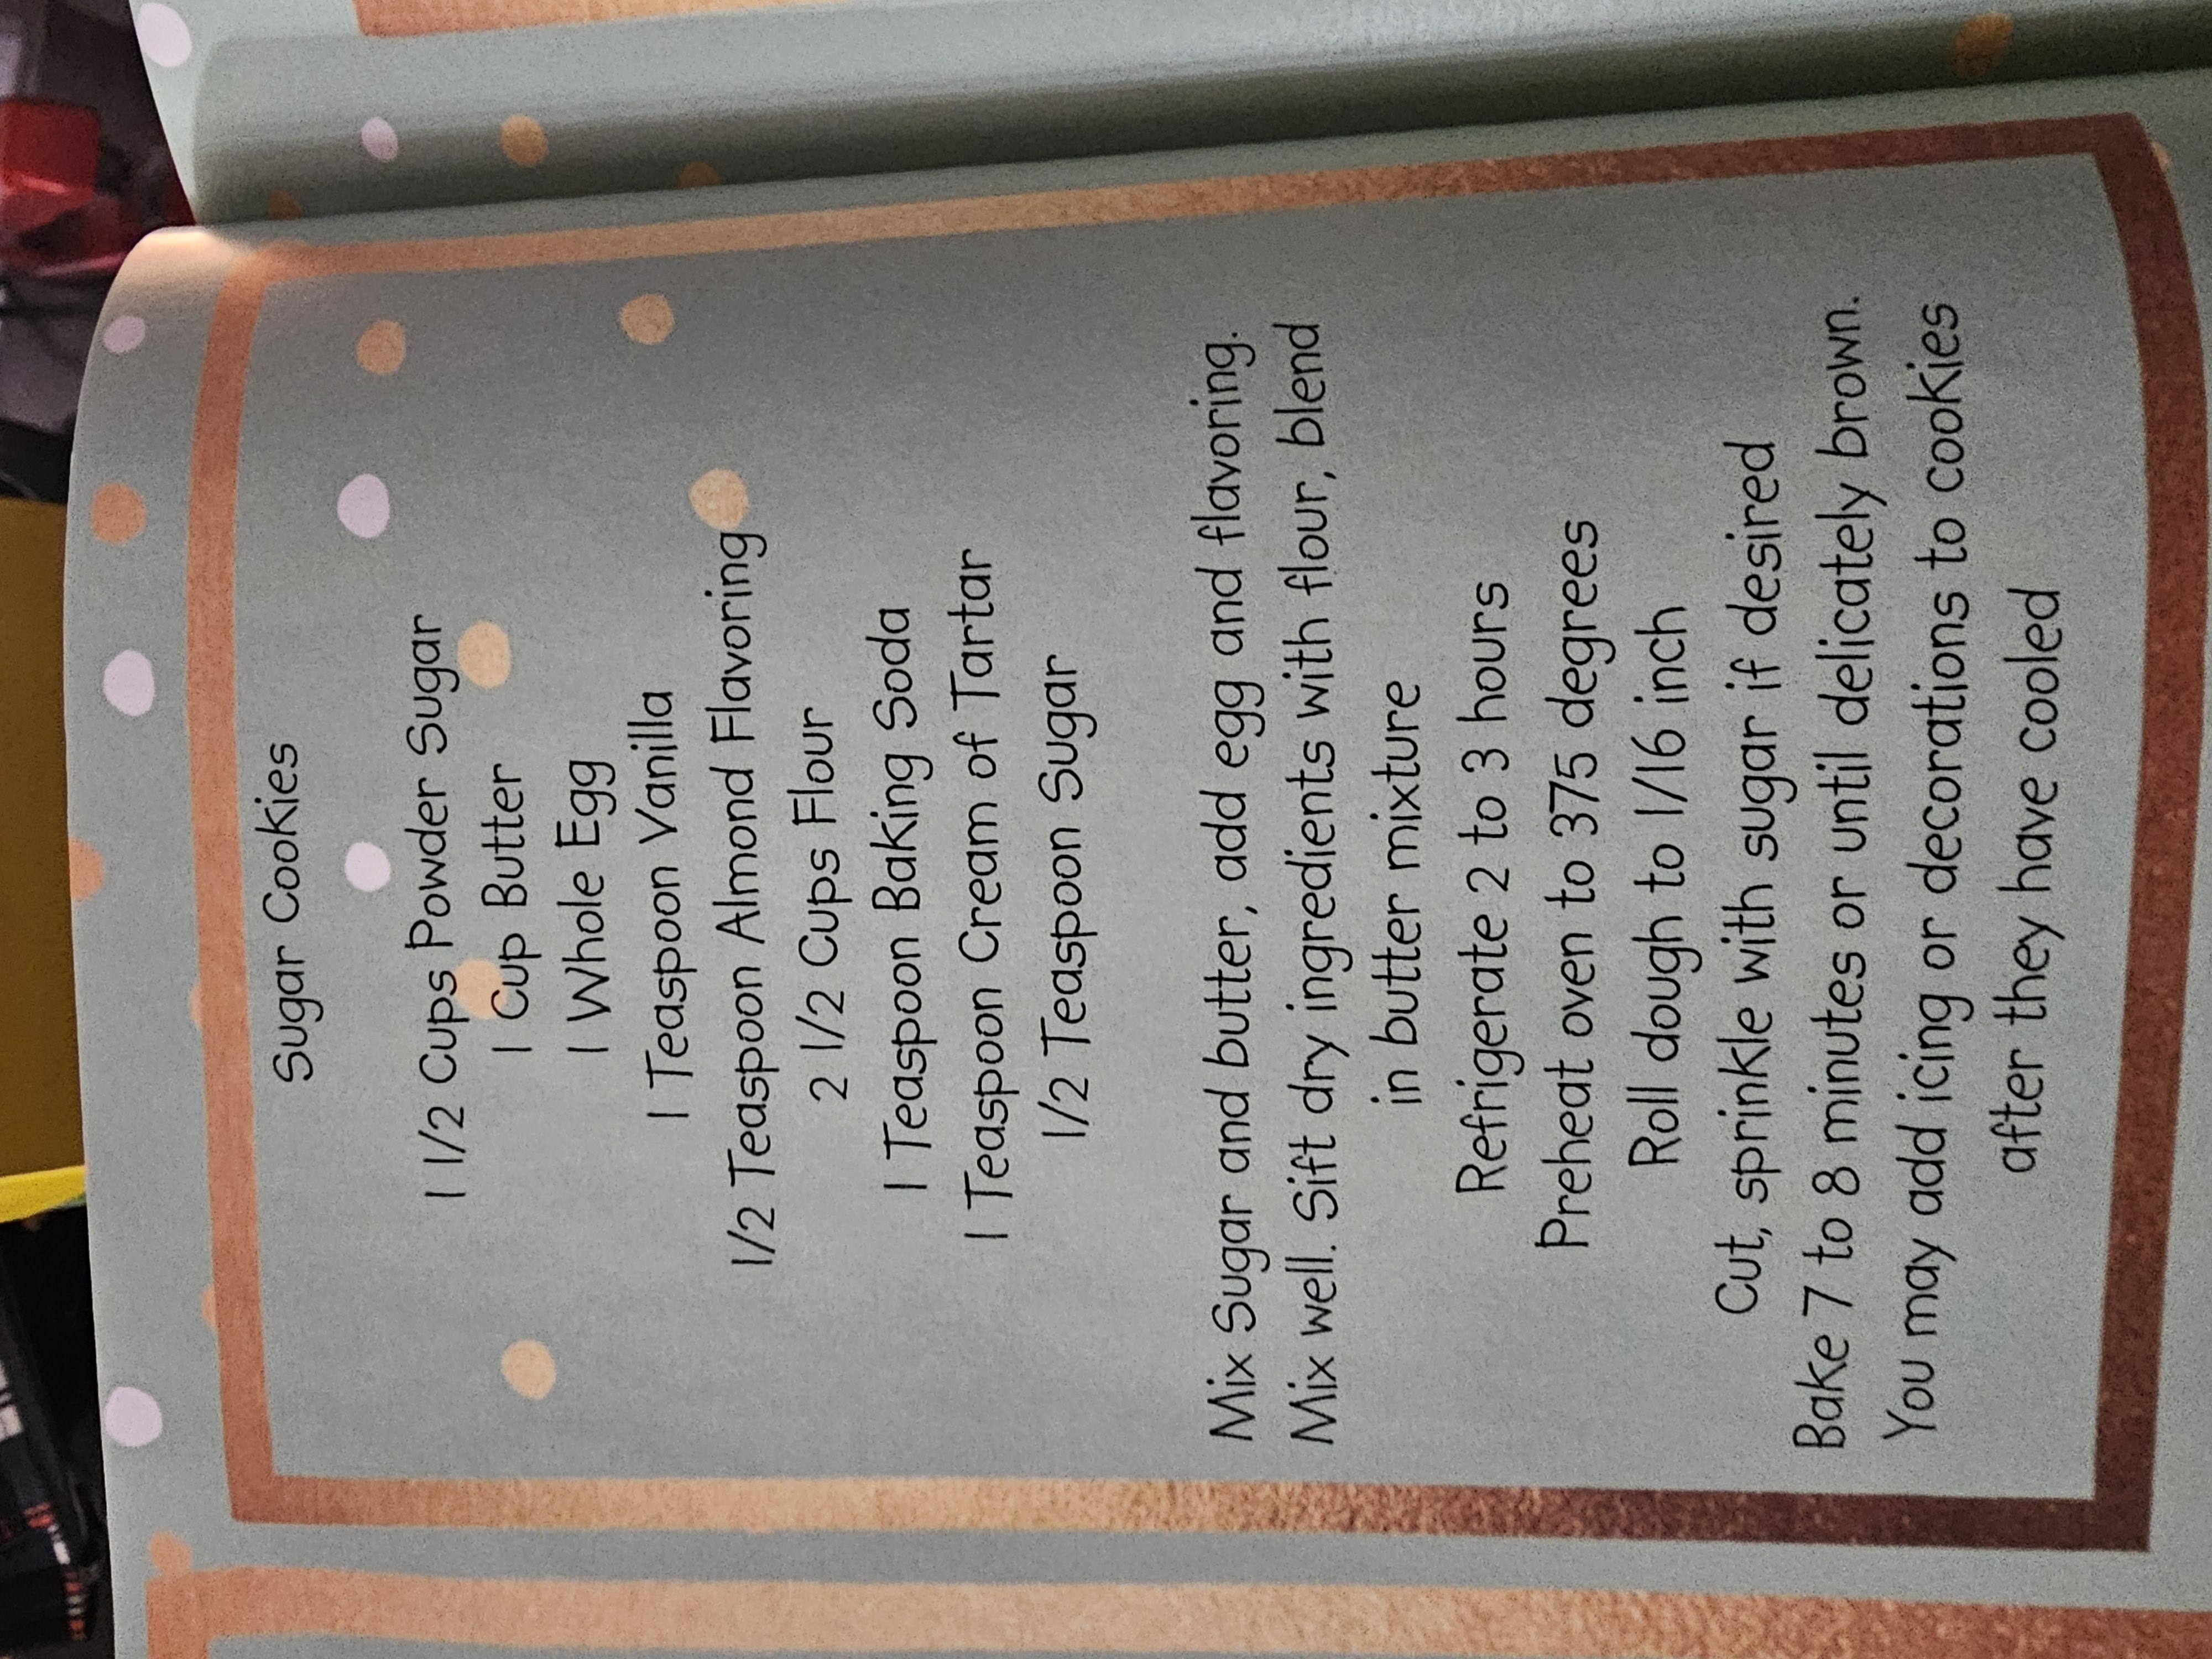 Sugar Cookies
1 1/2 Cups Powder Sugar
1 Cup Butter
1 Whole Egg
1 Teaspoon Vanilla
1/2 Teaspoon Almond Flavoring
2 1/2 Cups Flour
1 Teaspoon Baking Soda
1 Teaspoon Cream of Tartar
1/2 Teaspoon Sugar
Mix Sugar and butter, add egg and flavoring.
Mix well. Sift dry ingredients with flour, blend
in butter mixture
Refrigerate 2 to 3 hours
Preheat oven to 375 degrees
Roll dough to 1/16 inch
Cut, sprinkle with sugar if desired
Bake 7 to 8 minutes or until delicately brown.
You may add icing or decorations to cookies
after they have cooled